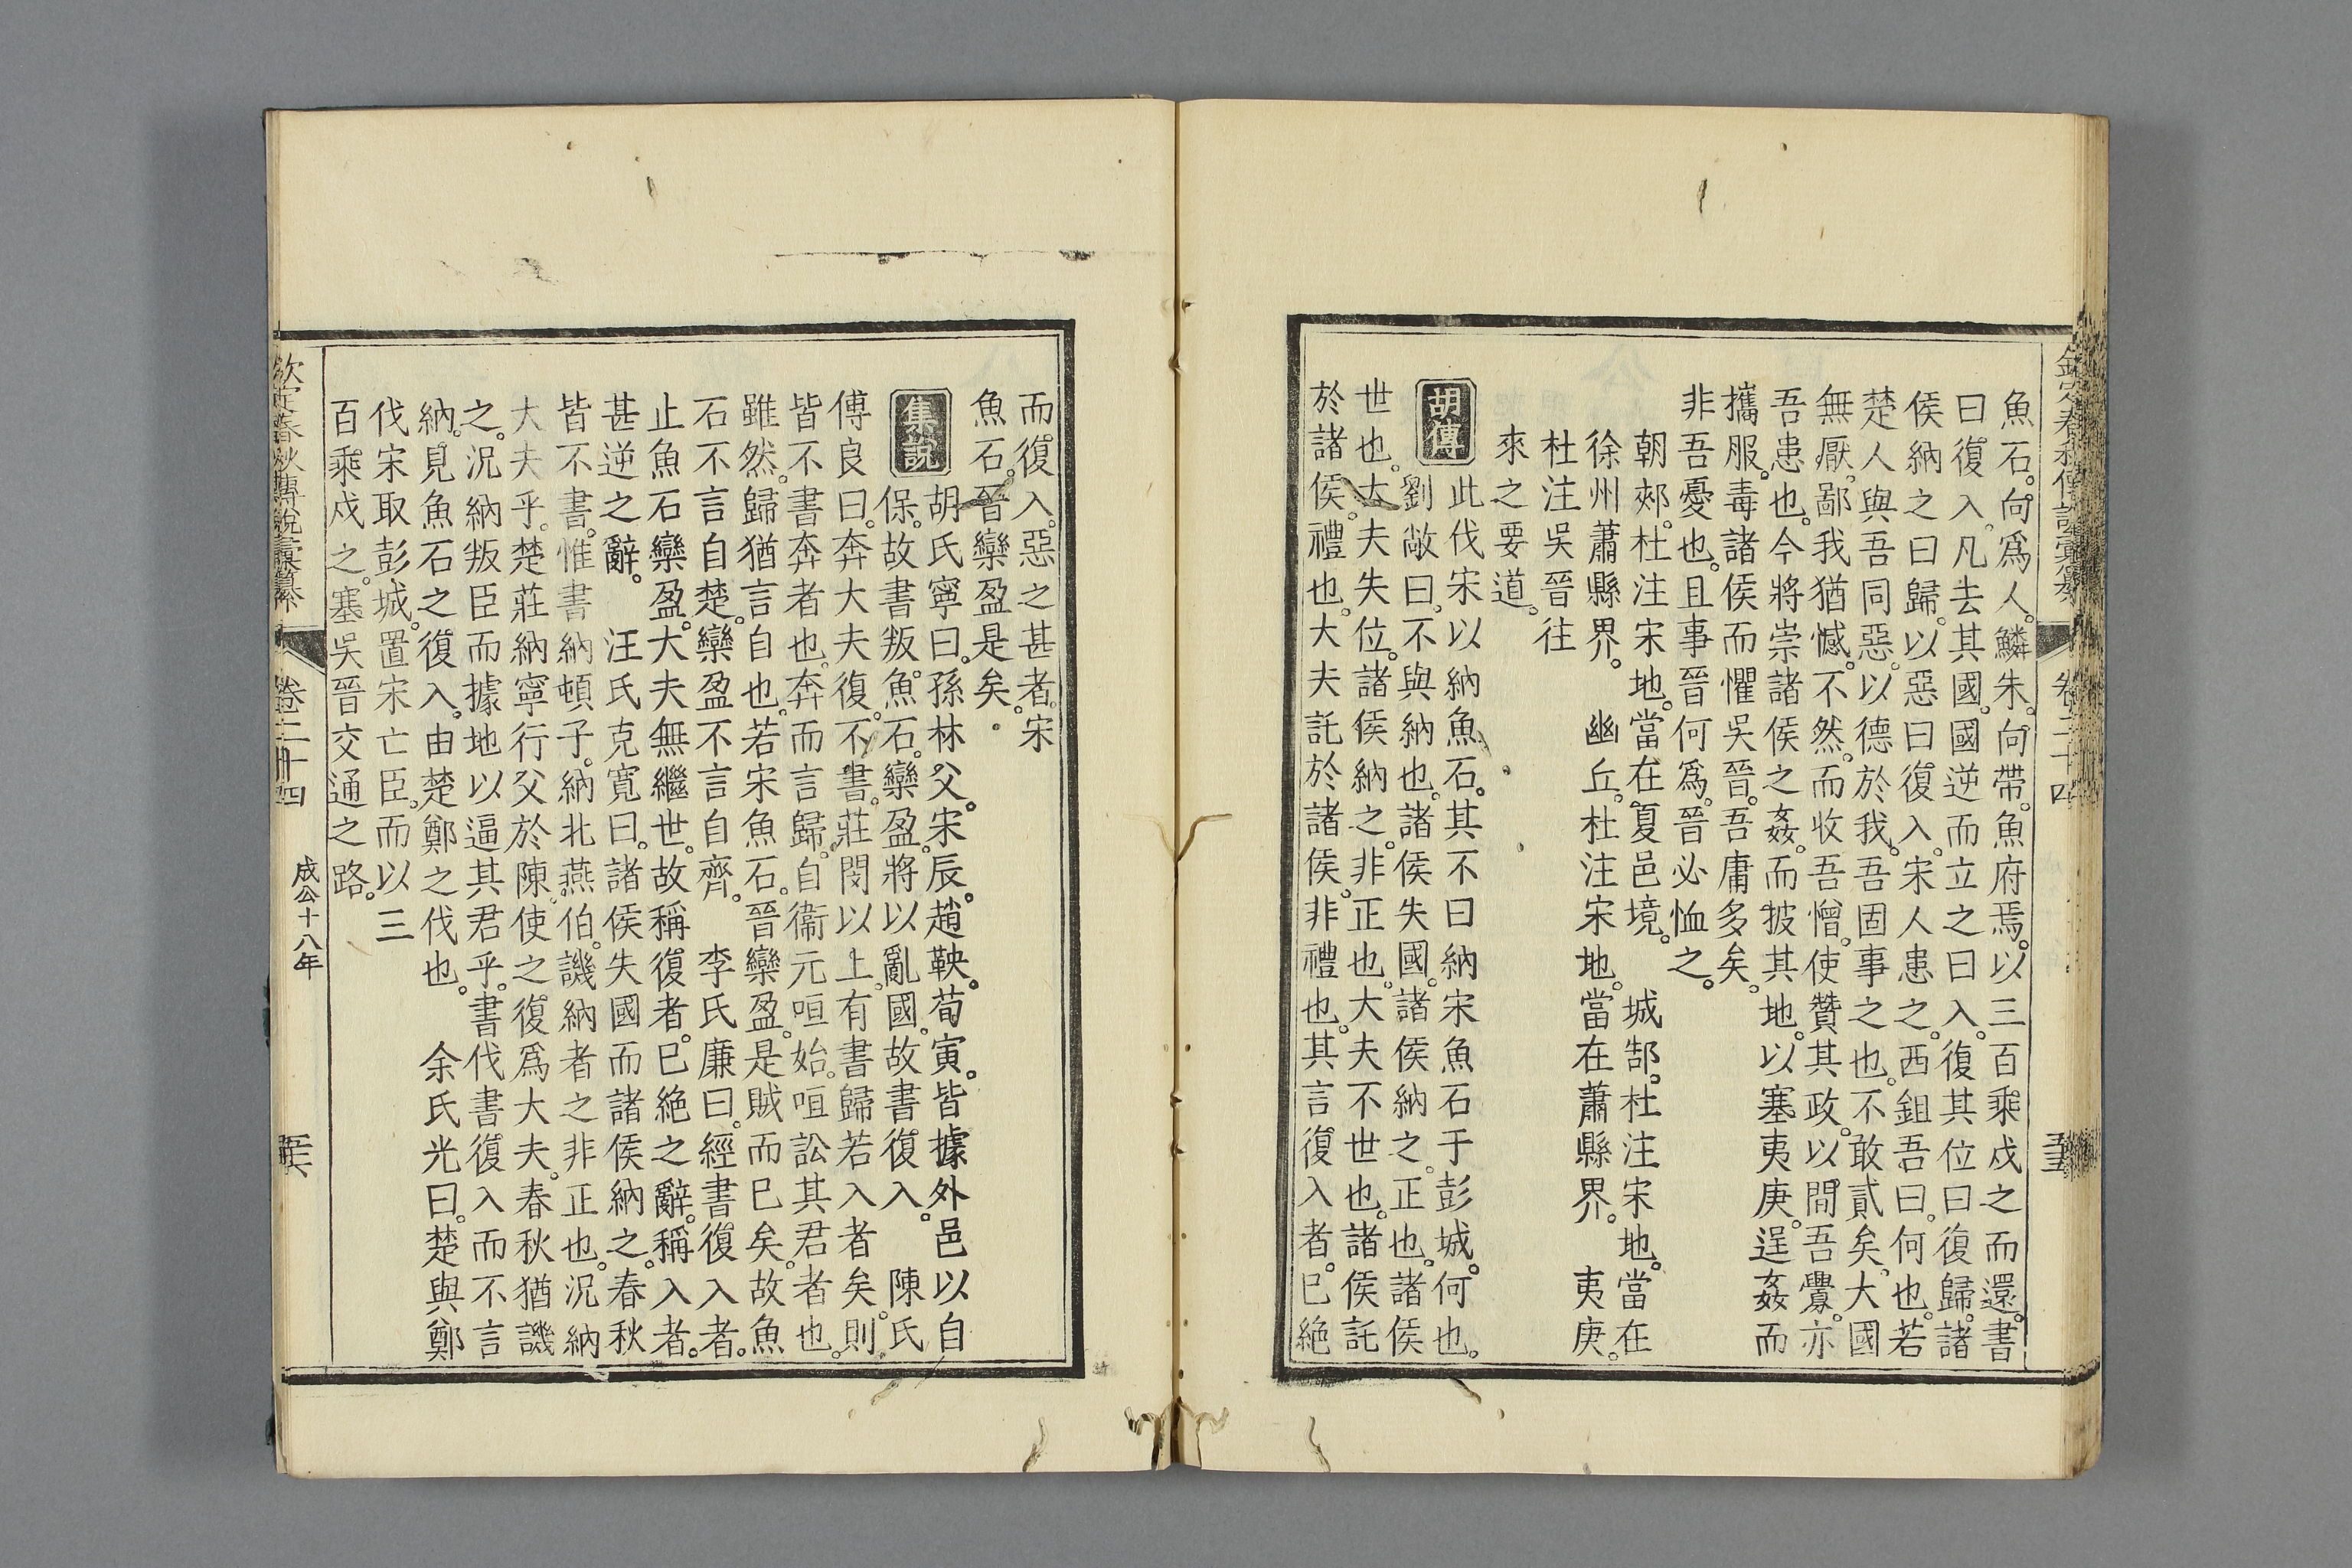 魚石。向爲人。鱗朱。向帶。魚府焉。以三百乘戍之而還。書
曰復入。凡去其國。國逆而立之曰入。復其位曰復歸。諸
侯納之曰歸。以惡曰復入。宋人患之。西鉏吾曰。何也。若
楚人與吾同惡。以德於我。吾固事之也。不敢貳矣。大國
無厭。鄙我猶憾。不然。而收吾憎。使贊其政。以間吾釁。亦
吾患也。今將崇諸侯之姦。而披其地。以塞夷庚。逞姦而
攜服。毒諸侯而懼吳晉。吾庸多矣。
非吾憂也。且事晉何爲。晉必恤之。
朝郟。杜注宋地。當在夏邑境。 城郜。杜注宋地。當在
徐州蕭縣界。 幽丘。杜注宋地。當在蕭縣界。 夷庚。
杜注吳晉往
來之要道。
胡傳
此伐宋以納魚石。其不曰納宋魚石于彭城。何也。
劉敞曰。不與納也。諸侯失國。諸侯納之。正也。諸侯
世也。大夫失位。諸侯納之。非正也。大夫不世也。諸侯託
於諸侯。禮也。大夫託於諸侯。非禮也。其言復入者。已絕
欽定春秋傳說彙纂
卷二十四
而復入。惡之甚者。宋
魚石。晉欒盈是矣。
集說
胡氏寧曰。孫林父。宋辰。趙鞅。荀寅。皆據外邑以自
保。故書叛。魚石。欒盈。將以亂國。故書復入。 陳氏
傅良曰。奔大夫復。不書。莊閔以上。有書歸若入者矣。則
皆不書奔者也。奔而言歸。自衞元咺始。咺訟其君者也。
雖然。歸猶言自也。若宋魚石。晉欒盈。是賊而已矣。故魚
石不言自楚。欒盈不言自齊。 李氏廉曰。經書復入者。
止魚石欒盈。大夫無繼世。故稱復者。已絕之辭。稱入者。
甚逆之辭。 汪氏克寬曰。諸侯失國而諸侯納之。春秋
皆不書。惟書納頓子。納北燕伯。譏納者之非正也。況納
大夫乎。楚莊納寧行父於陳。使之復爲大夫。春秋猶譏
之。況納叛臣而據地以逼其君乎。書伐書復入而不言
納。見魚石之復入。由楚鄭之伐也。 余氏光曰。楚與鄭
伐宋取彭城。置宋亡臣。而以三
百乘戍之。塞吳晉交通之路。
欽定春秋傳說彙纂
卷二十四
成公十八年